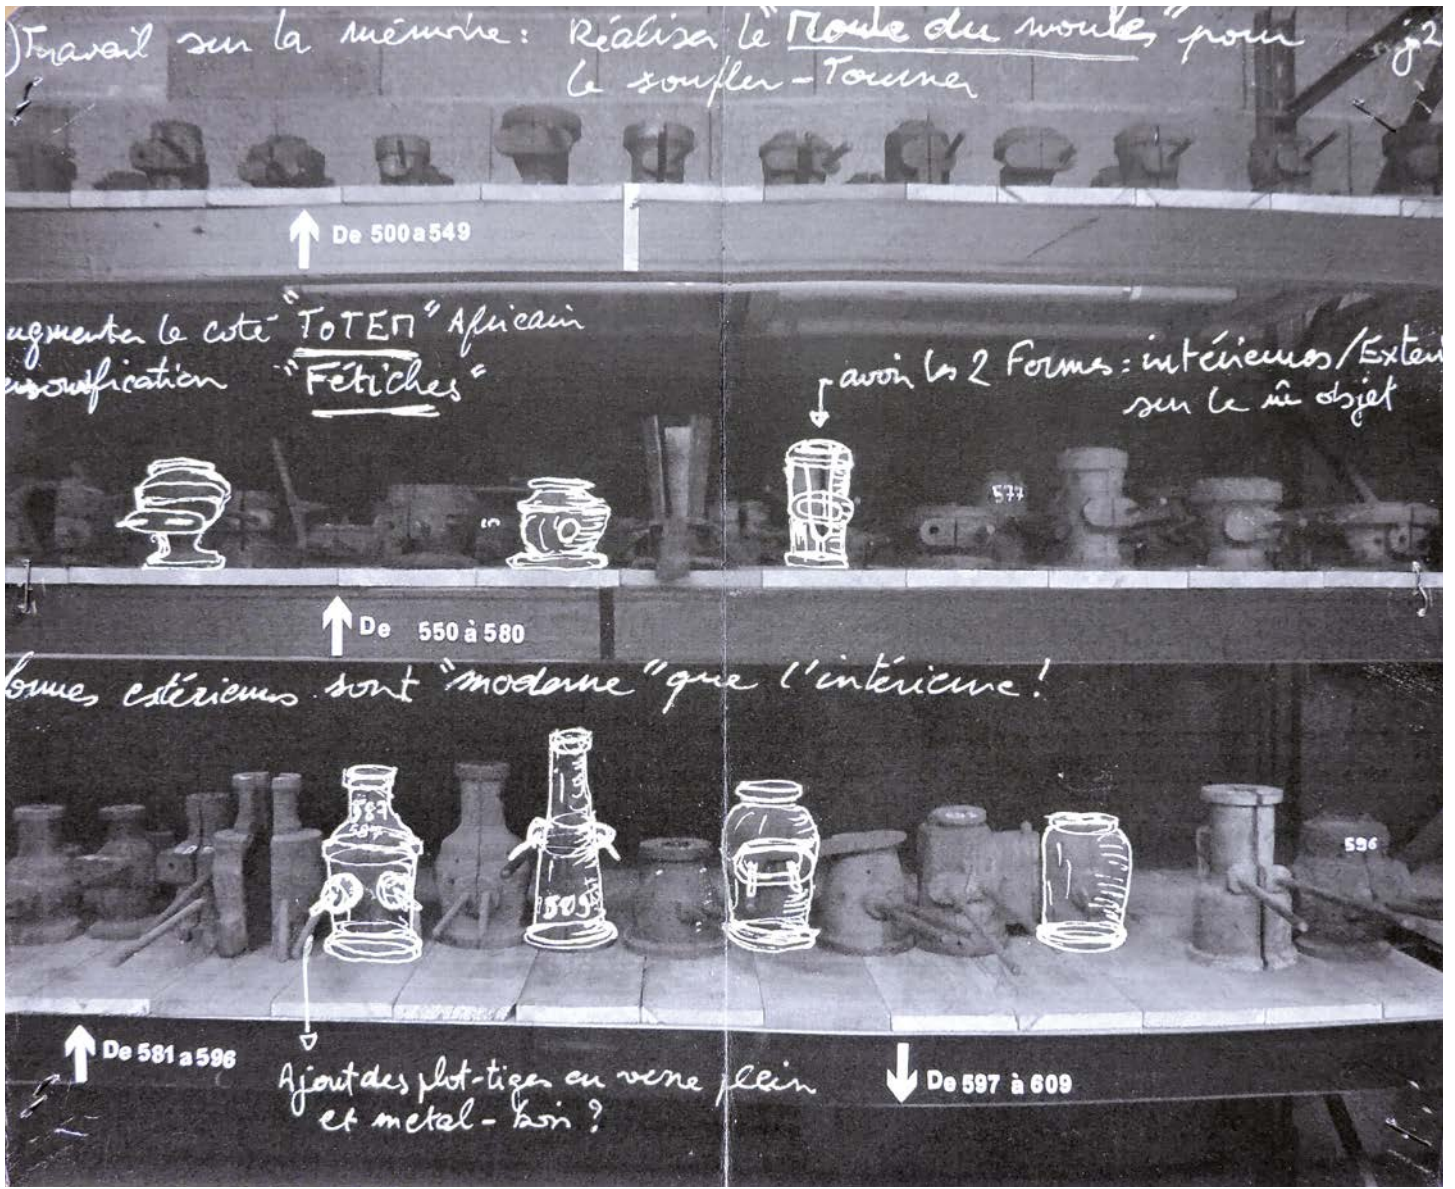 )Travail sur la mémoire: Réaliser le "Moule du moules" pour
le soufler-Tourner
De 500 a 549
ugmenter le coté "TOTEM" Africain
sonification "Fétiches"
avoir les 2 Formes: intérieures/Exterieu
sur le m̂ objet
577
De 550 à 580
formes extérieures sont "moderne" que l'intérieure!
587
587
596
De 581 a 596
De 597 à 609
Ajout des plot-tiges en verre plein
et metal-bois?